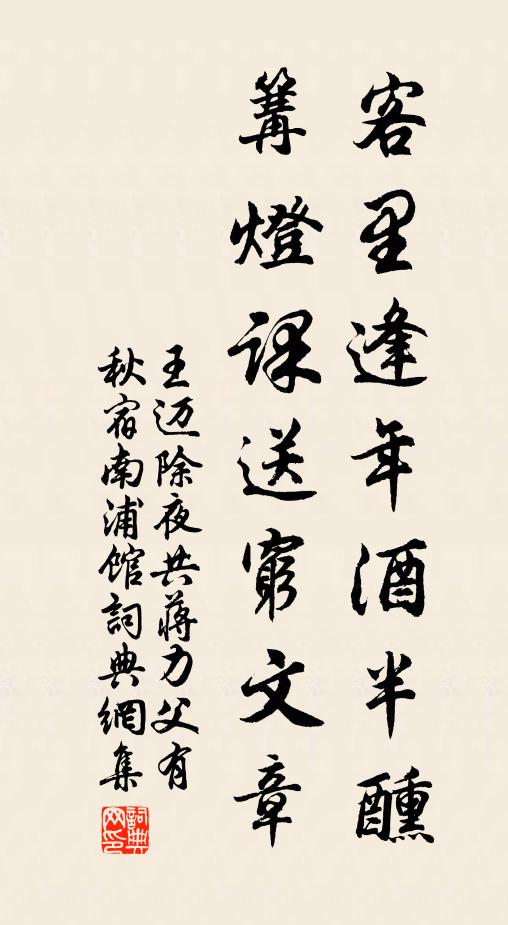 客里逢年酒半醺
篝燈課送窮文章
王迈除夜共蔣力父有
秋宿南浦館詞典網集
詞典网印